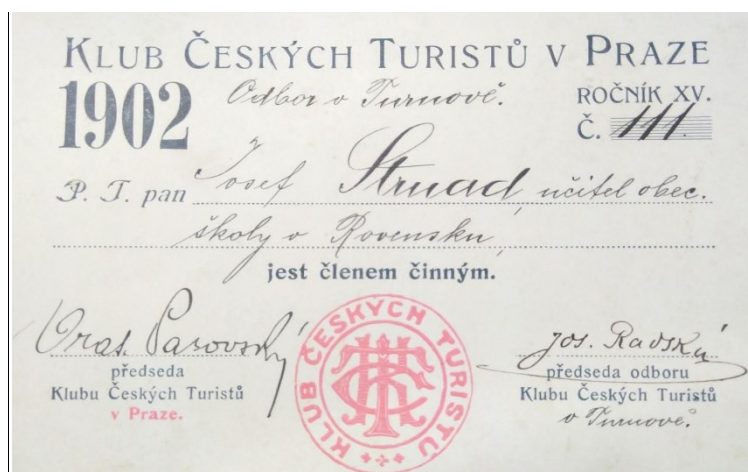 KLUB ČESKÝCH TURISTŮ V PRAZE
1902
Odbor v Turnově.
ROČNÍK XV.
Č. 111.
P. T. pan Josef Strnad, učitel obec.
školy v Rovensku,
jest členem činným.
Vrat. Pasovský
předseda
Klubu Českých Turistů
v Praze.
KLUB ČESKÝCH TURISTŮ
KČT
Jos.
předseda odboru
Klubu Českých Turistů
v Turnově.